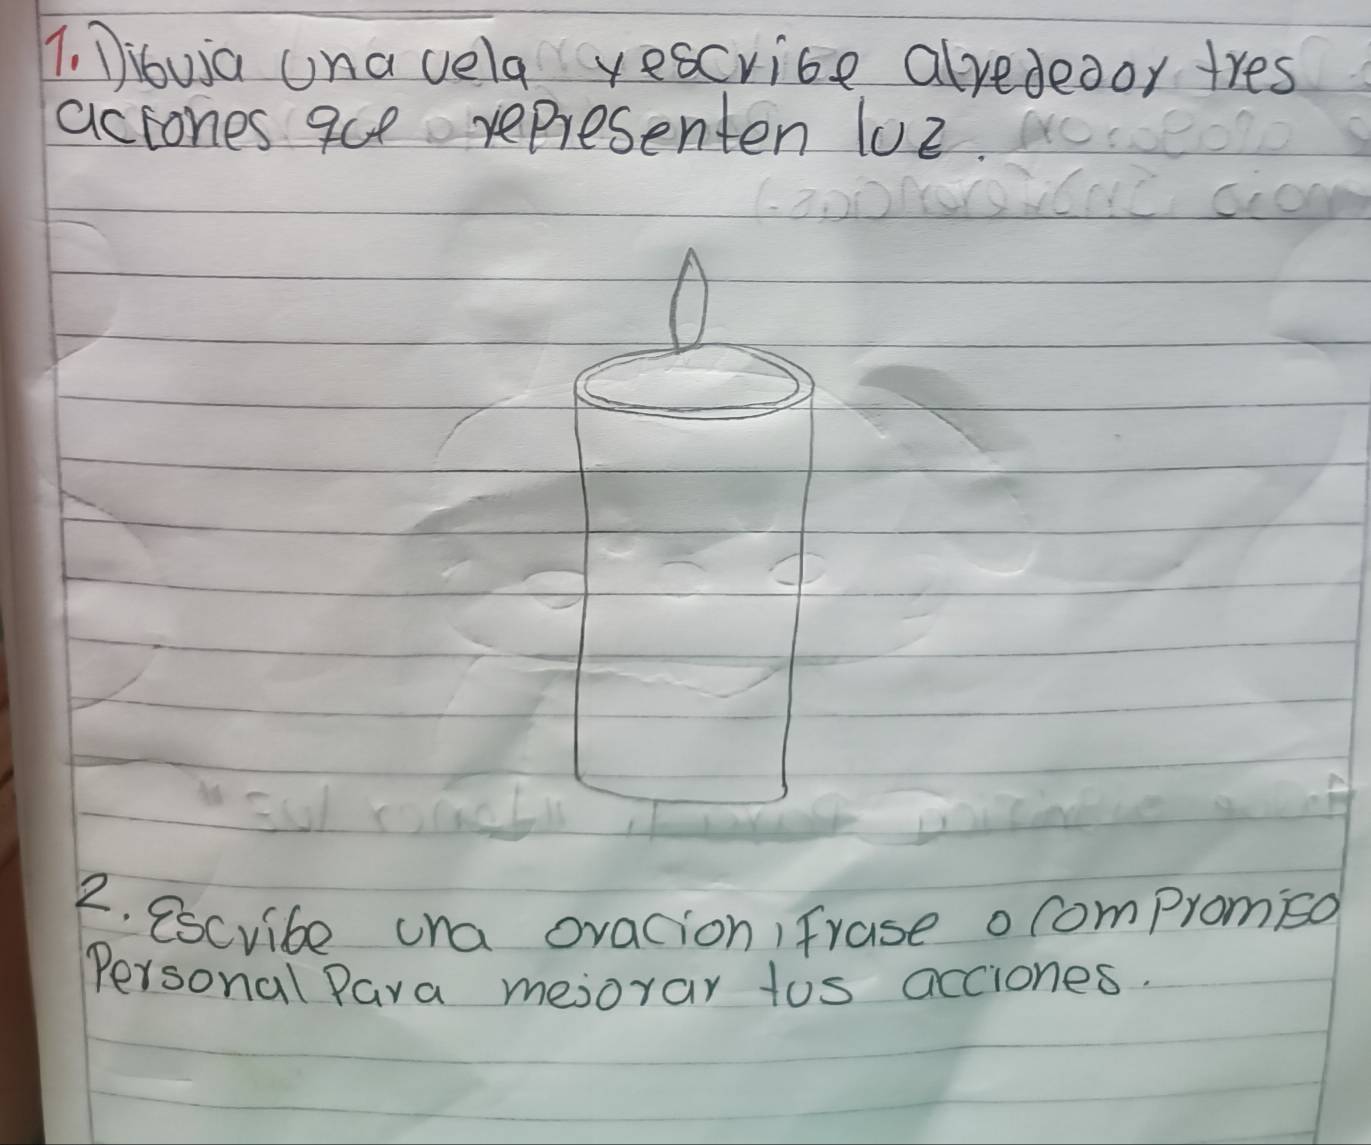 1. Dibuja una vela y escribe alrededor tres
acciones que representen luz.
2. Escribe una oracion, frase o compromiso
Personal Para mejorar tus acciones.